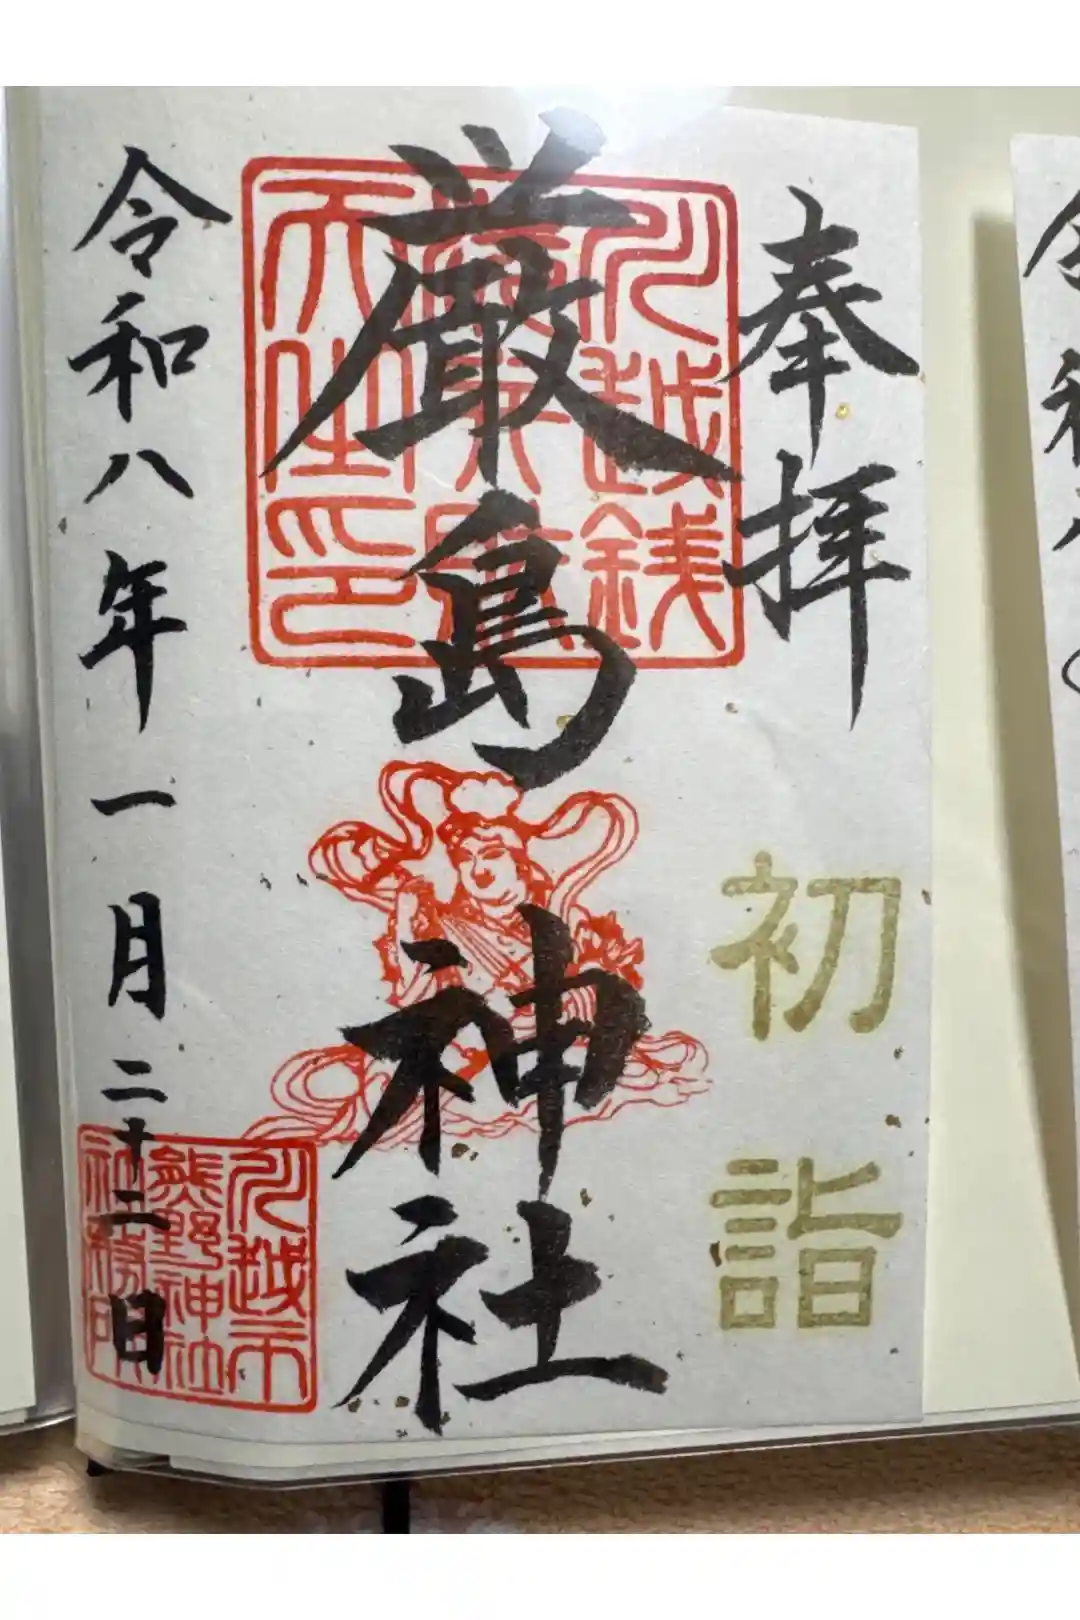 奉拝
初詣
川越銭
洗弁財
天之印
厳島神社
令和八年一月二十二日
川越市
熊野神社
社務所